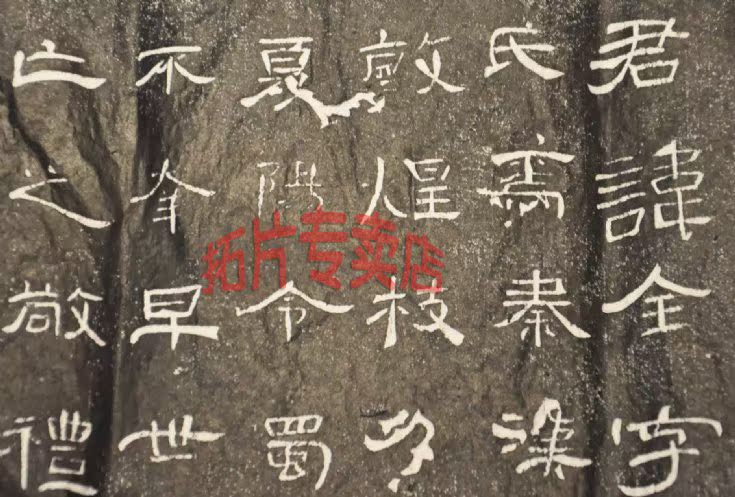 君諱全字
氏焉秦漢
敦煌枝分
夏陽令蜀
不幸早世
亡之敬禮
拓片专卖店